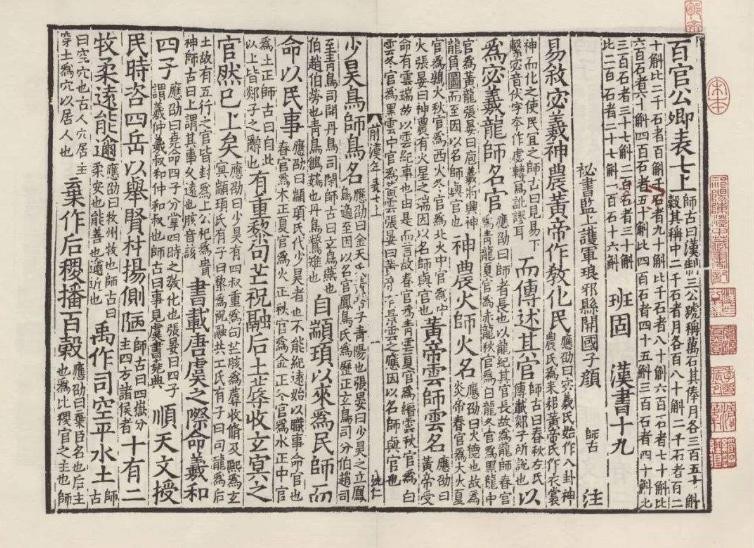 百官公卿表七上 師古曰漢制三公號稱萬石其俸月各三百五十斛穀其稱中二千石者月各百八十斛二千石者百二
十斛比二千石者百斛千石者九十斛比千石者八十斛六百石者七十斛比六百石者六十斛四百石者五十斛比四百石者四十五斛三百石者四十斛比
三百石者三十七斛二百石者三十斛比二百石者二十七斛一百石者十六斛
班固 漢書十九
祕書監上護軍琅邪縣開國子顏 師古 注
易敘宓羲神農黃帝作教化民 應劭曰宓羲氏始作八卦神農氏為耒耜黃帝氏作衣裳
神而化之使民宜之師古曰見易下繫宓音伏字本作虙轉寫訛謬耳 而傳述其官 師古曰春秋左氏傳載郯子所說也 以
為宓羲龍師名官 應劭曰師者長也以龍紀其官長故為龍師春官為青龍夏官為赤龍秋官為白龍冬官為黑龍中
官為黃龍張晏曰庖羲將興神龍負圖而至因以名師與官也 神農火師火名 應劭曰火德也故為炎帝春官為大火夏
官為鶉火秋官為西火冬官為北火中官為中火張晏曰神農有火星之瑞因以名師與官也 黃帝雲師雲名 應劭曰黃帝受
命有雲瑞故以雲紀事也由是而言故春官為青雲夏官為縉雲秋官為白雲冬官為黑雲中官為黃雲張晏曰黃帝有景雲之應因以名師與官也
前漢年表七上
少昊鳥師鳥名 應劭曰金天氏子青陽也張晏曰少昊之立鳳鳥適至因以名官鳳鳥氏為歷正玄鳥司分伯趙司
至青鳥司開丹鳥司閉師古曰玄鳥燕也伯趙伯勞也青鳥鶬鴳也丹鳥鷩雉也 自顓頊以來為民師而
命以民事 應劭曰顓頊氏代少昊者也不能紀遠始以職事命官也春官為木正夏官為火正秋官為金正冬官為水正中官
為土正師古曰自此以上皆郯子之辭也 有重黎句芒祝融后土蓐收玄冥之
官然已上矣 應劭曰少昊有四叔重為句芒胲為蓐收脩及熙為玄冥顓頊氏有子曰黎為祝融共工氏有子曰句龍為后
土故有五行之官皆封為上公祀為貴神師古曰上謂其事久遠也胲音該 書載唐虞之際命羲和
四子 應劭曰堯命四子分掌四時之教化也張晏曰四子謂羲仲羲叔和仲和叔也師古曰事見虞書堯典 順天文授
民時咨四岳以舉賢材揚側陋 師古曰四嶽分主四方諸侯者 十有二
牧柔遠能邇 應劭曰牧州牧也師古曰柔安也能善也邇近也 禹作司空平水土 師古
曰空穴也古人穴居主穿土為穴以居人也 棄作后稷播百穀 應劭曰棄臣名也后主也為比稷官之主也師